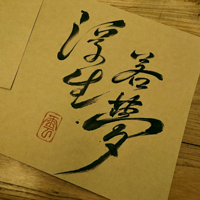 浮生
若夢